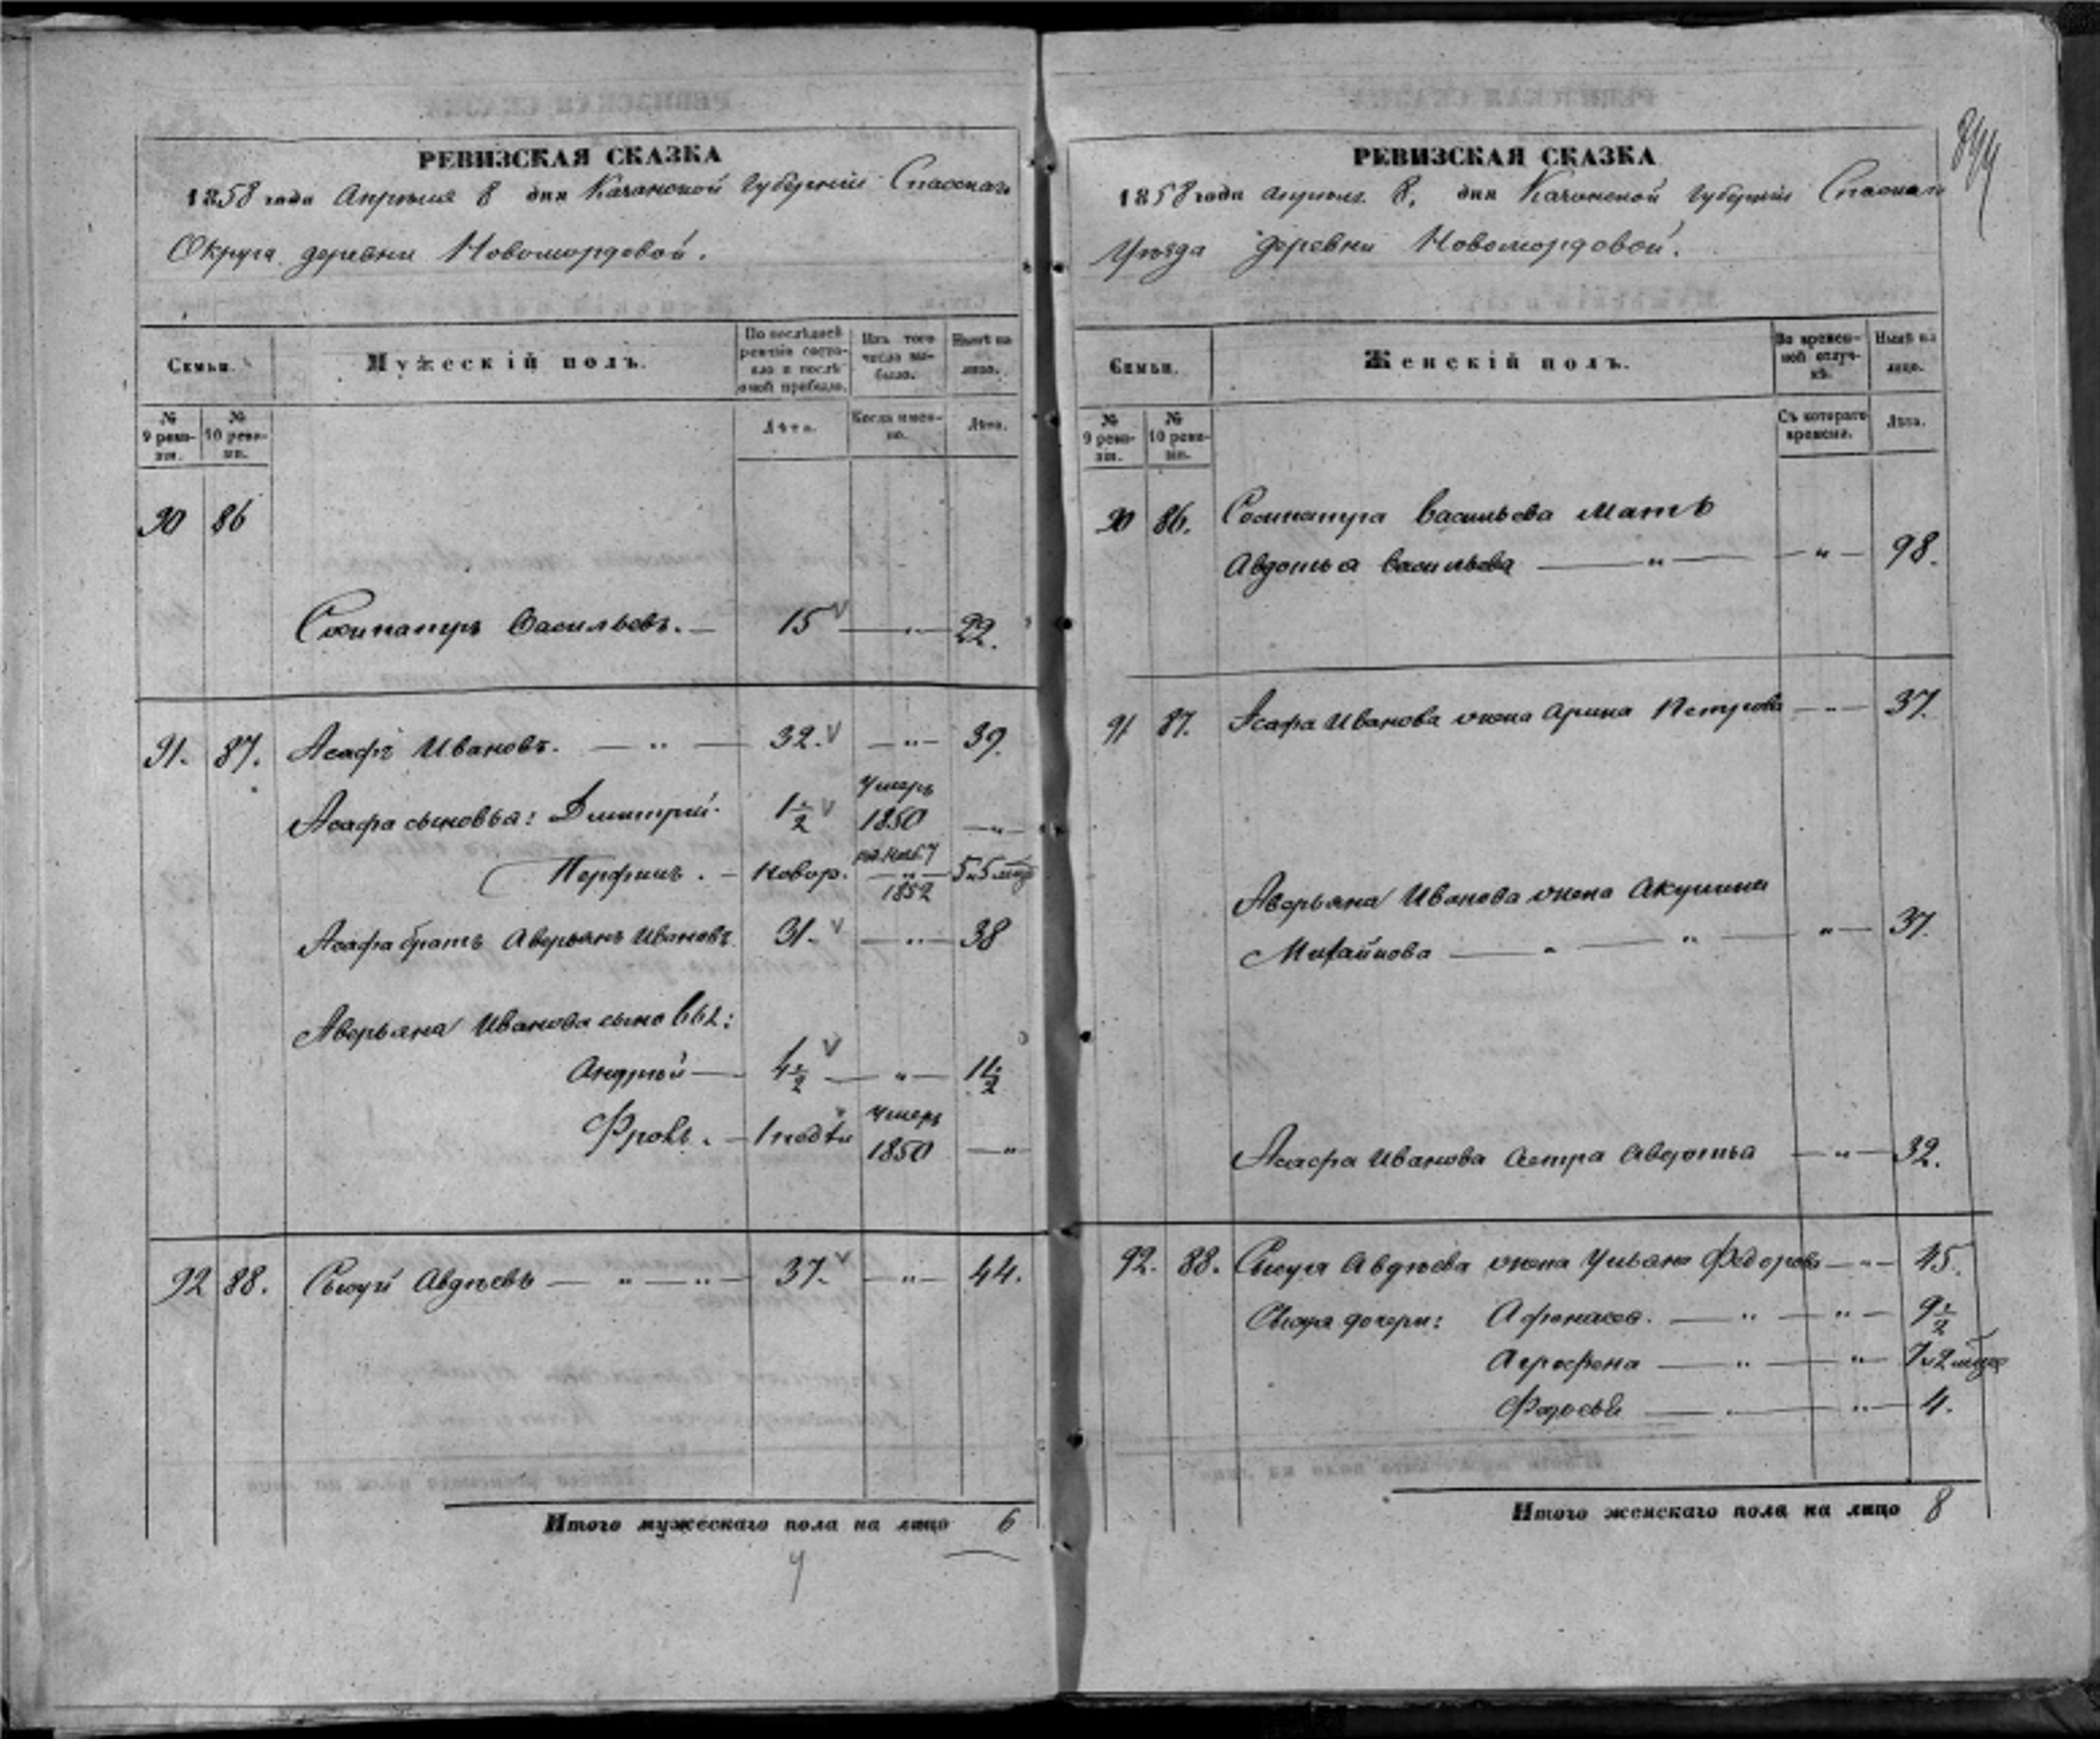 РЕВИЗСКАЯ СКАЗКА
1858 года Апрѣля 8 дня Казанской Губерніи Спасскаго
Округа деревни Новомордовой.
Семьи.
Мужескій полъ.
По послѣдней ревизіи состояло и послѣ оной прибыло.
Изъ того числа выбыло.
Нынѣ на лицо.
№ 9 ревизіи.
№ 10 ревизіи.
Лѣта.
Когда именно.
Лѣта.
90 86
Сосипатръ Васильевъ. — 15 — „ — 22.
91. 87. Асафъ Ивановъ. — „ — 32. — „ — 39.
Асафа сыновья: Дмитрій. 1 1/2 Умеръ 1850 — „ —
Перфилъ. — новор. 1852 5 и 5 мѣц
Асафа братъ Аверьянъ Ивановъ 31. — „ — 38
Аверьяна Иванова сыновья:
Андрей — 4 1/2 — „ — 11 1/2
Фролъ. — 1 нед Умеръ 1850 — „
92 88. Сысуй Авдѣевъ — „ — „ — 37. — „ — 44.
Итого мужескаго пола на лицо 6
РЕВИЗСКАЯ СКАЗКА
1858 года апрѣля 8, дня Казанской Губерніи Спаскаго
Уѣзда деревни Новомордовой.
Семьи.
Женскій полъ.
Во временной отлучкѣ.
Нынѣ на лицо.
№ 9 ревизіи.
№ 10 ревизіи.
Съ котораго времени.
Лѣта.
90 86. Сосипатра Васильева мать
Авдотья Васильева — „ — — „ — 98.
91 87. Асафа Иванова жена Арина Петрова — „ — 37.
Аверьяна Иванова жена Акулина
Михайлова — „ — „ — „ — 37.
Асафа Иванова сестра Авдотья — „ — 32.
92. 88. Сысуя Авдѣева жена Ульяна Федорова — „ — 45.
Сысуя дочери: Афонасея. — „ — „ — 9 1/2
Агрофена — „ — „ — 7 и 2 мѣца
Федосья — „ — 4.
Итого женскаго пола на лицо 8